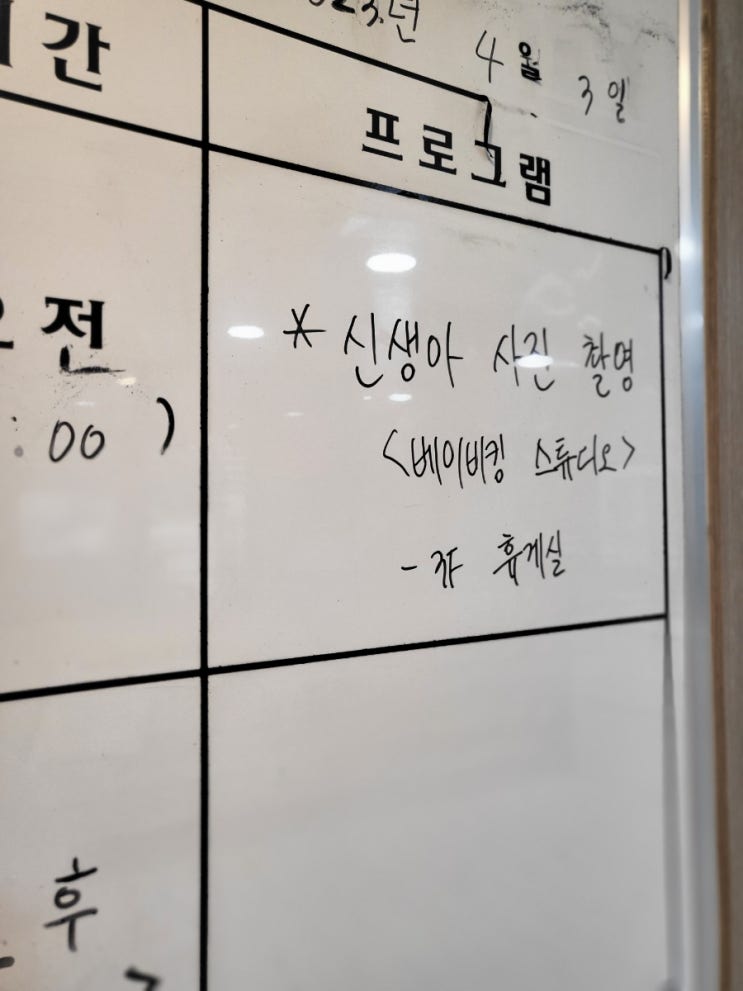 23.년 4월 3일
간 프로그램
전 * 신생아 사진 촬영
:00 ) <베이비킹 스튜디오>
- 3F 휴게실
후